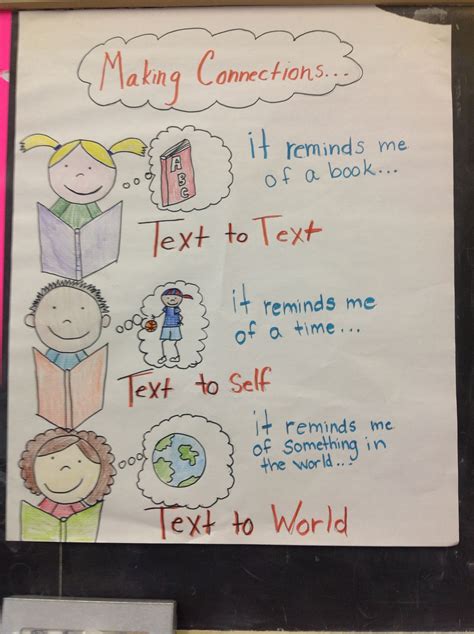 Making Connections...
ABC
it reminds me
of a book...
Text to Text
it reminds me
of a time...
Text to Self
it reminds me
of something in
the world...
Text to World